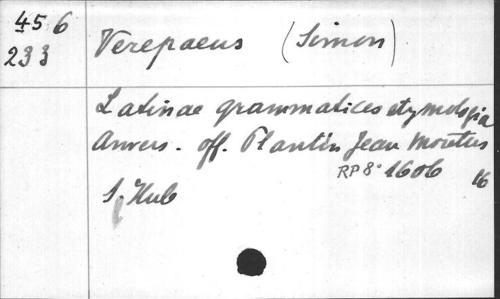 456 Verepaeus (Simon)
233
Latinae grammatices etymologia
Anvers. off. Plantin Jean Moretus
RP 8° 1606 16
S. Hub